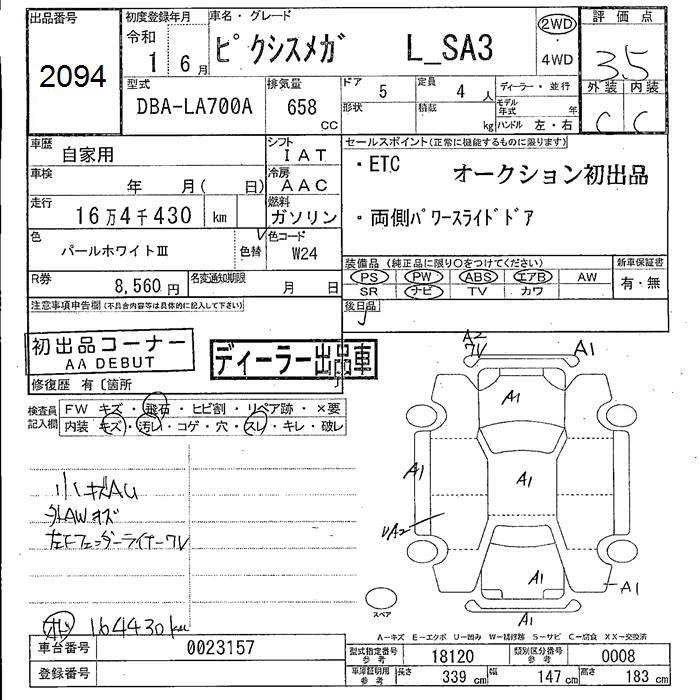 出品番号
2094
初度登録年月
令和
1 6月
車名・グレード
ピクシスメガ L_SA3
2WD
・
4WD
評価点
3.5
外装 内装
C C
型式
DBA-LA700A
排気量
658
CC
ドア
5
形状
定員
4 人
積載
kg
ディーラー・並行
モデル年式 年
ハンドル 左・右
車歴
自家用
シフト
IAT
車検
年 月( 日)
冷房
AAC
走行
16万4千430 km
燃料
ガソリン
色
パールホワイトⅢ
色替
色コード
W24
R券
8,560円
名変通知期限
月 日
セールスポイント(正常に機能するものに限ります)
・ETC オークション初出品
・両側パワースライドドア
装備品(純正品に限り○をつけてください)
PS PW ABS エアB AW
SR ナビ TV カワ
新車保証書
有・無
後日品
注意事項申告欄(不具合内容等は具体的に記入して下さい)
初出品コーナー
AA DEBUT
ディーラー出品車
修復歴 有〔箇所
検査員
記入欄
FW キズ・飛石・ヒビ割・リペア跡・×要
内装 キズ・汚レ・コゲ・穴・スレ・キレ・破レ
小キズAU
外AWキズ
左Fフェンダーライナー7V
164430km
A2
7V
A1
A1
A1
A1
A1
A1
A1
スペア
A―キズ E―エクボ U―凹み W―補修跡 S―サビ C―腐食 XX―交換済
車台番号
0023157
登録番号
型式指定番号
参考
18120
類別区分番号
参考
0008
車庫証明用
参考
長さ
339 cm
幅
147 cm
高さ
183 cm